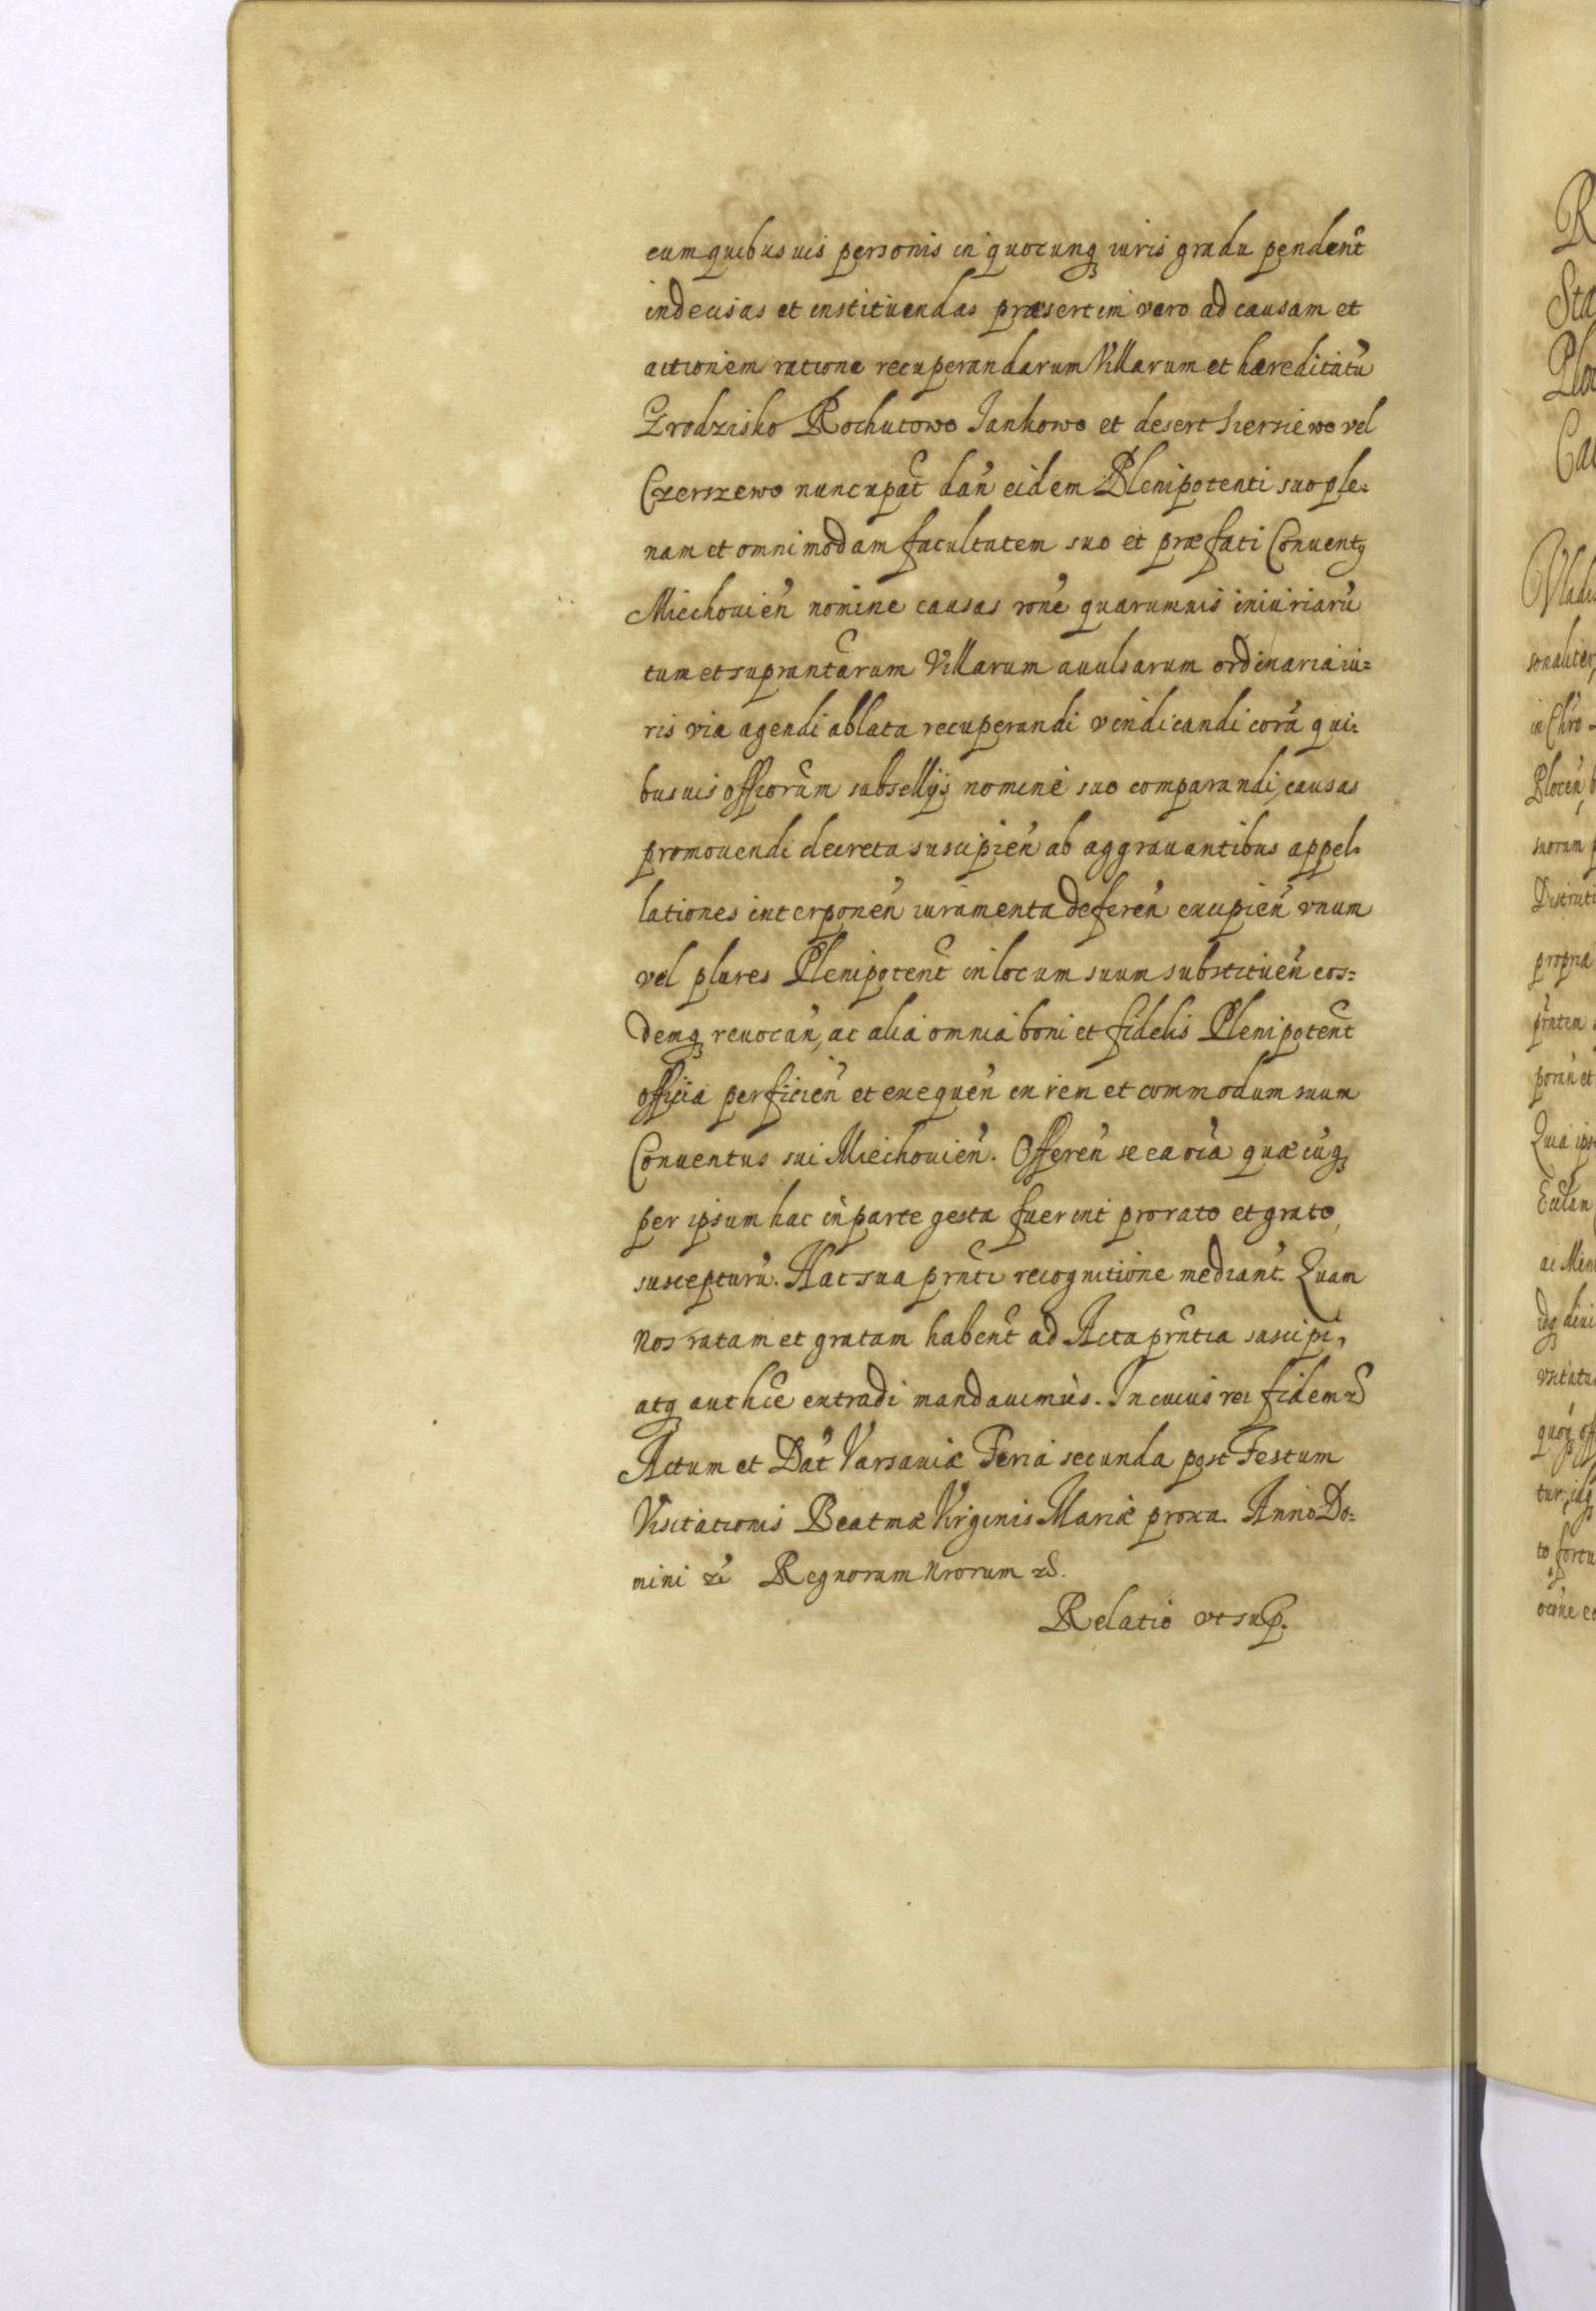 cum quibusuis personis in quocunq iuris gradu pendent̃
indecisas et instituendas præsertim vero ad causam et
actionem ratione recuperandarum Villarum et hæreditatũ
Grodzisko Rochutowo Jankowo et desert Szersiewo vel
Czerszewo nuncupat̃ dañ eidem Plenipotenti suo ple=
nam et omnimodam facultatem suo et præfati Conuentq
Miechouieñ nomine causas rõne quarumuis iniuriarũ
tum et supranta͠rum Villarum auulsarum ordinaria iu=
ris via agendi ablata recuperandi vendicandi corã qui=
busuis officior͠um subsellijs nomine suo comparandi, causas
promouendi decreta suscipieñ ab aggrauantibus appel=
lationes interponeñ iuramenta defereñ excipieñ vnum
vel plures Plenipotent̃ in locum suum substitueñ eos=
demq reuocañ, ac alia omnia boni et fidelis Plenipotent̃
officia perficieñ et exequeñ in rem et commodum suum
Conuentus sui Miechouieñ. Offereñ se ea oĩa quæcũq
per ipsum hac in parte gesta fuerint pro rato et grato
suscepturũ. Hac sua prñti recognitione mediant̃. Quam
Nos ratam et gratam habent̃ ad Acta prñtia suscipi,
atq authc̃e extradi mandauimus. In cuius rei fidem &
Actum et Dat̃ Varsauiæ Feria secunda post Festum
Visitationis Beatmæ Virginis Mariæ proxa. Anno Do=
mini & Regnorum Nrorum &.
Relatio vt sup.
R
Sta
Plo
Ca
Vladis
sonaliter
in Chro
Ploceñ
suorum p
Districti
propria
prñtem
porañ et
Quia ips
Eccl͠an
ac Men
idq diui
vsitatu
quoq off
tur, idq
to fortu